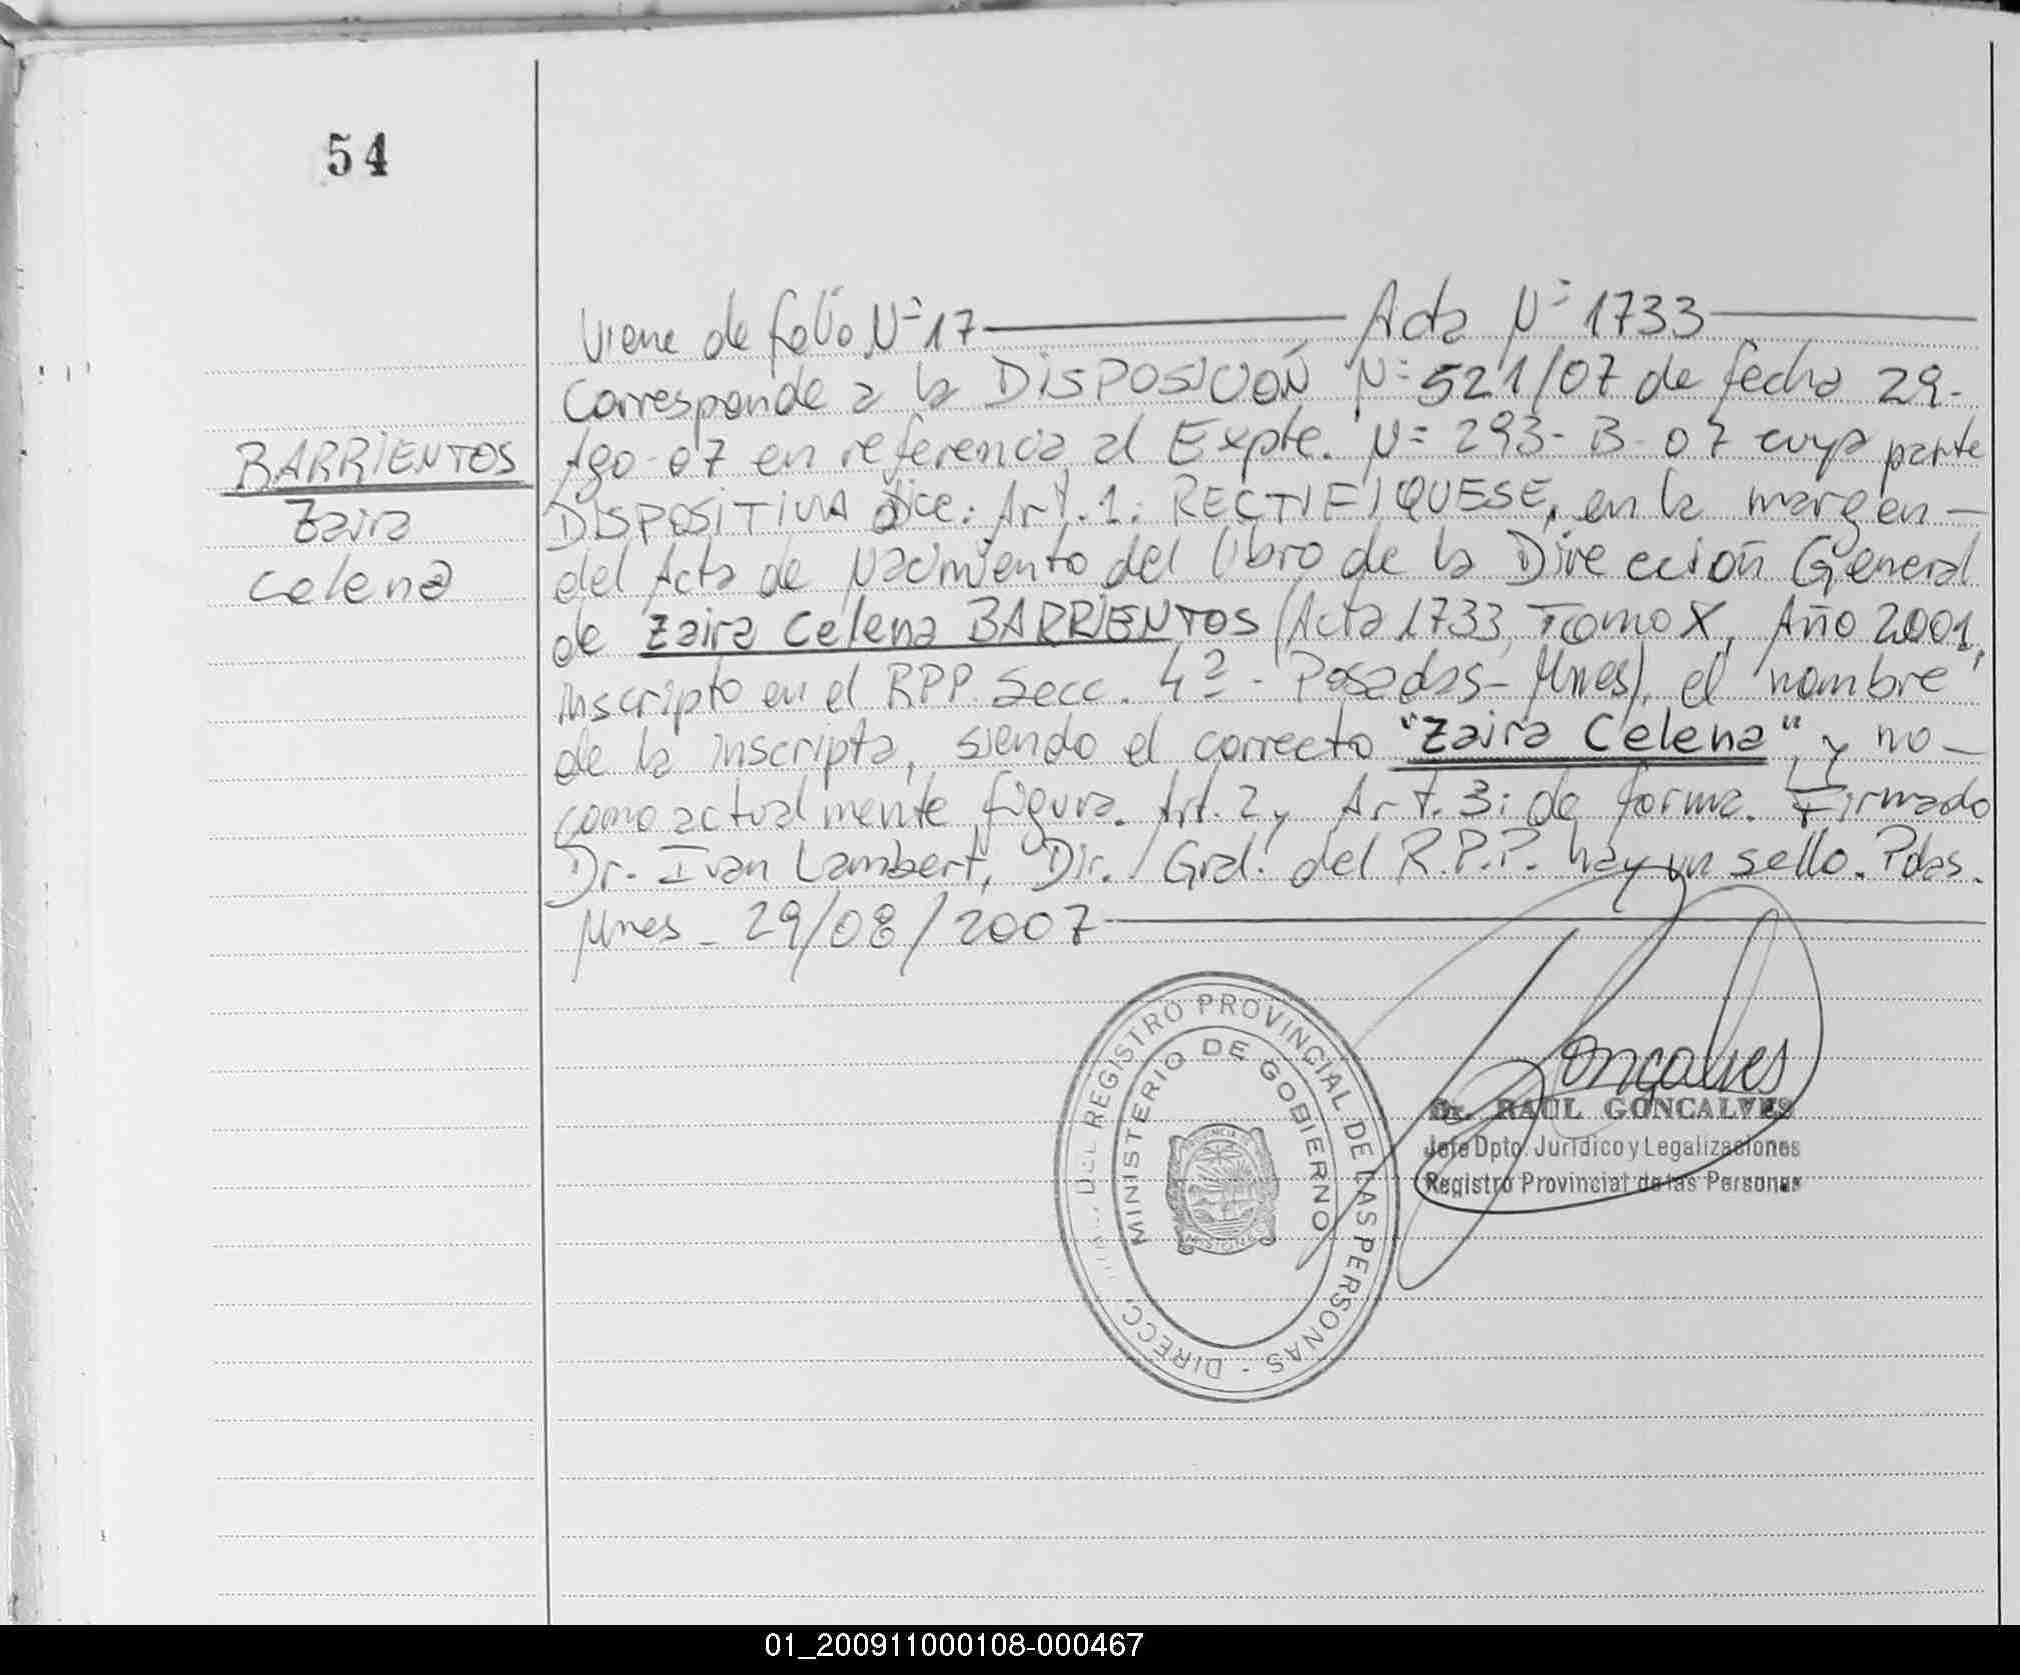 54
Viene de folio N° 17 — Acta N° 1733 —
Corresponde a la DISPOSICIÓN N° 521/07 de fecha 29-
BARRIENTOS
Zaira
Celena
Ago-07 en referencia al Expte. N° 293-B-07 cuya parte
DISPOSITIVA dice: Art. 1: RECTIFIQUESE, en la margen —
del Acta de Nacimiento del libro de la Dirección General
de Zaira Celena BARRIENTOS (Acta 1733, Tomo X, Año 2001,
inscripto en el RPP. Secc. 4ª - Posadas - Mnes), el nombre
de la inscripta, siendo el correcto "Zaira Celena", y no —
como actualmente figura. Art. 2 y Art. 3: de forma. Firmado
Dr. Ivan Lambert, Dir. Gral. del R.P.P. hay un sello. Pdas.
Mnes - 29/08/2007 —
DEL REGISTRO PROVINCIAL DE LAS PERSONAS - DIRECC
MINISTERIO DE GOBIERNO
Goncalves
Dr. RAUL GONCALVES
Jefe Dpto. Jurídico y Legalizaciones
Registro Provincial de las Personas
01_200911000108-000467